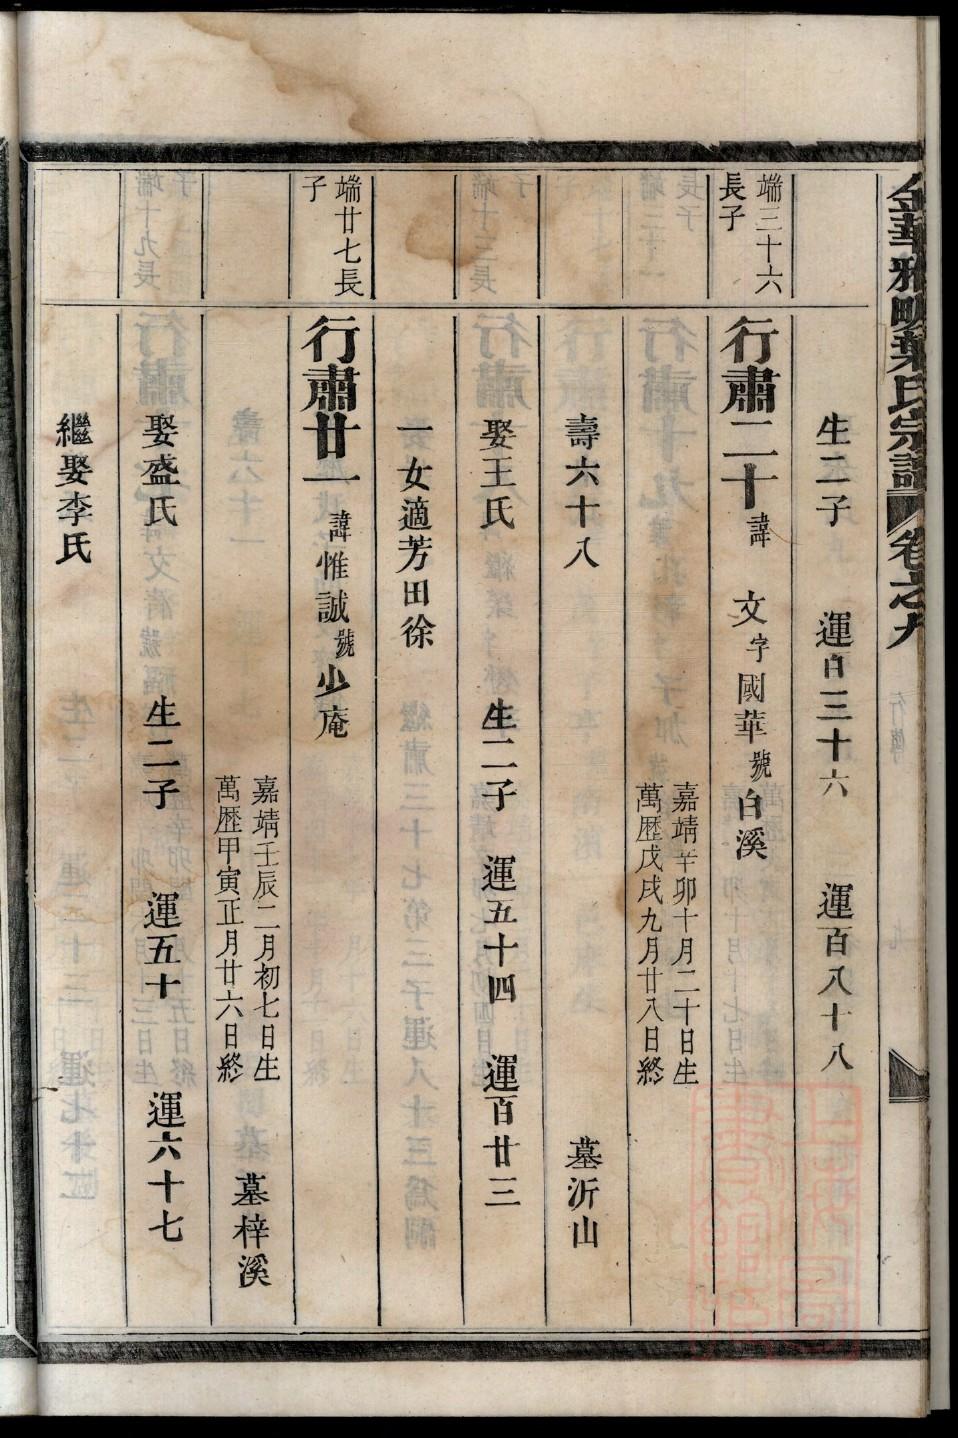 金華雅畈葉氏宗譜 卷之九
生二子 運百三十六 運百八十八
端三十六
長子
行肅二十 諱文 字國華 號白溪
嘉靖辛卯十月二十日生
萬歷戊戌九月廿八日終
壽六十八 墓沂山
娶王氏 生二子 運五十四 運百廿三
一女適芳田徐
端廿七長
子
行肅廿一 諱惟誠 號少庵
嘉靖壬辰二月初七日生
萬歷甲寅正月廿六日終
墓梓溪
娶盛氏 生二子 運五十 運六十七
繼娶李氏